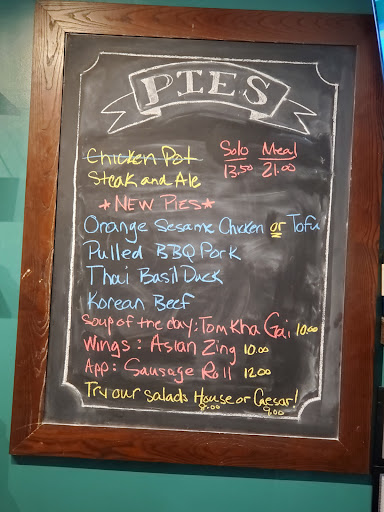 PIES
Chicken Pot Solo Meal
Steak and Ale 13.50 21.00
*NEW PIES*
Orange Sesame Chicken or Tofu
Pulled BBQ Pork
Thai Basil Duck
Korean Beef
Soup of the day: Tom Kha Gai 10.00
Wings: Asian Zing 10.00
App: Sausage Roll 12.00
Try our salads House or Caesar!
9.00